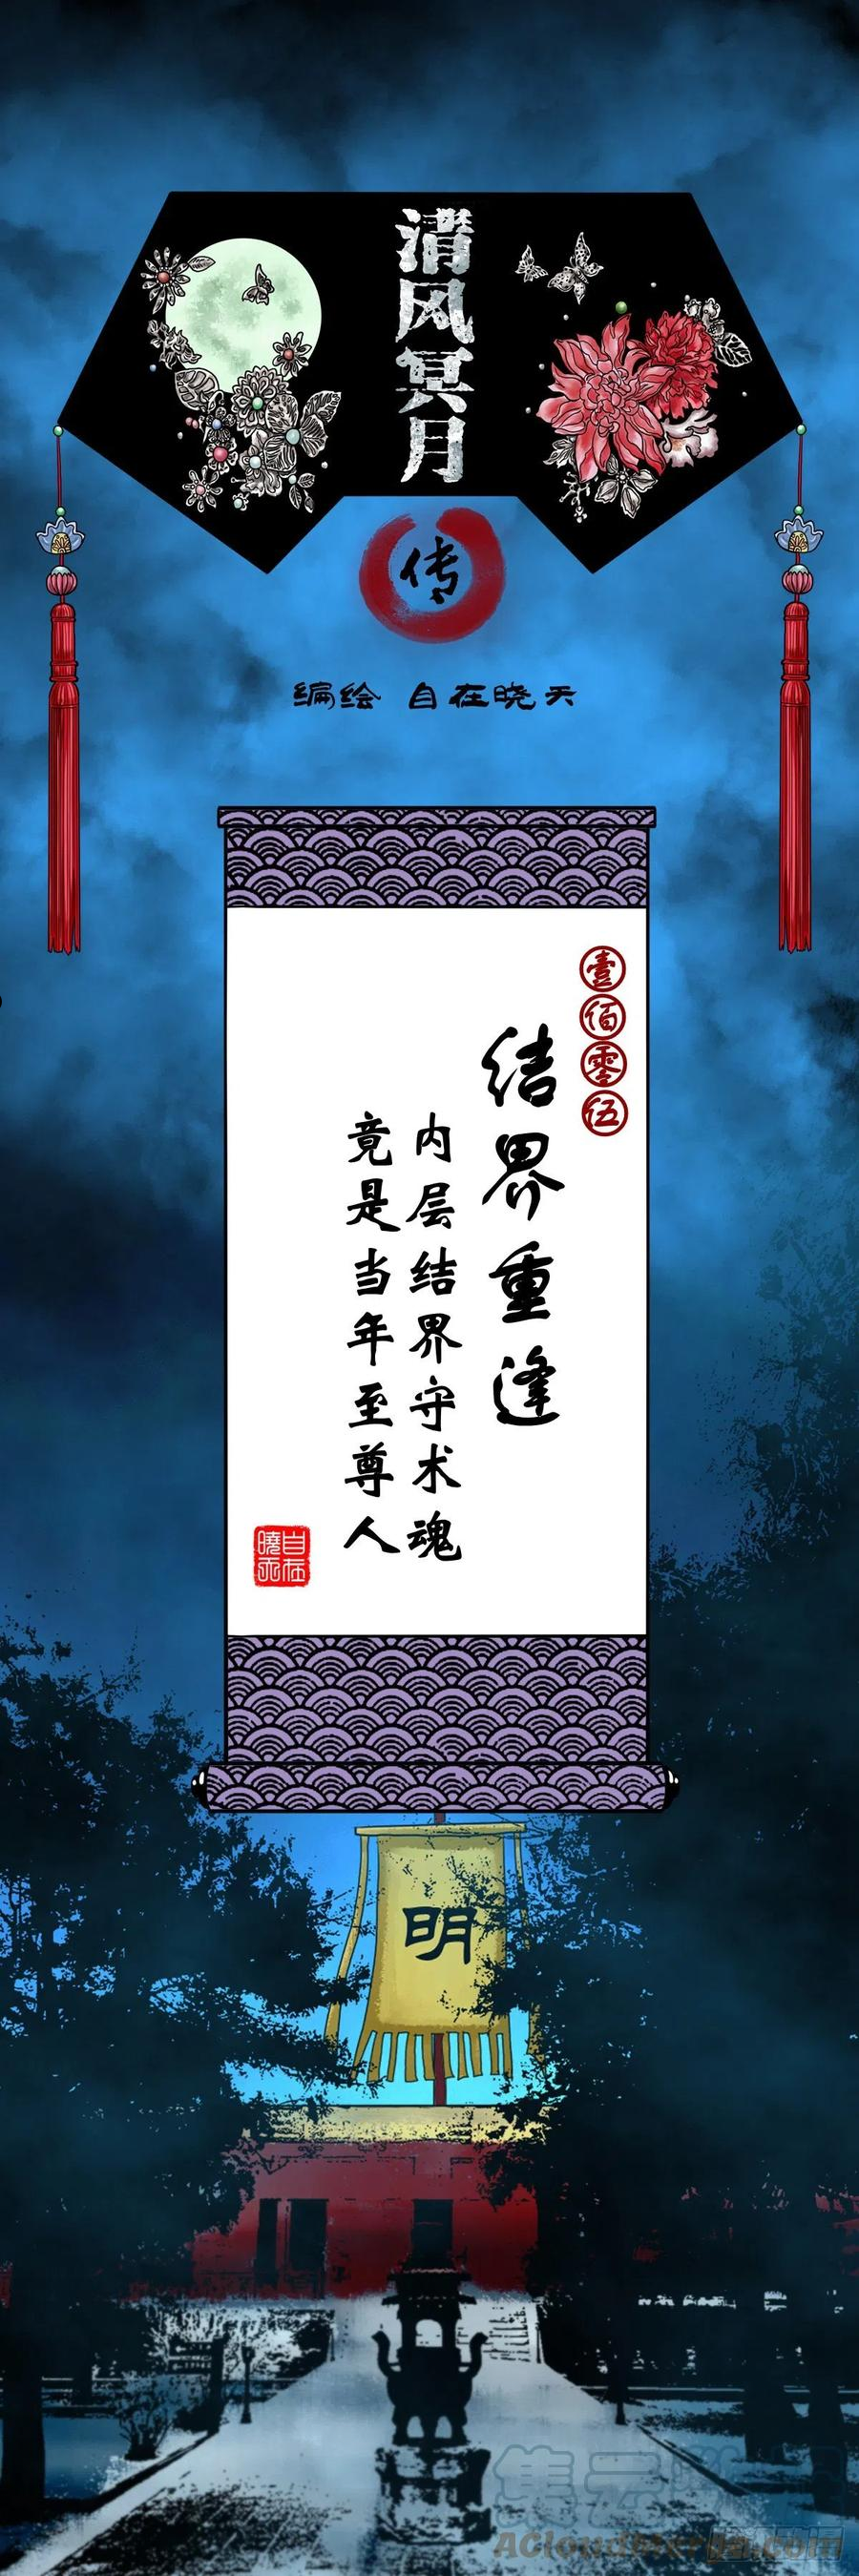 清风冥月
传
编绘 自在晓天
壹佰零伍
结界重逢
内层结界守术魂
竟是当年至尊人
自在
曉天
明
ACloudMerge.com